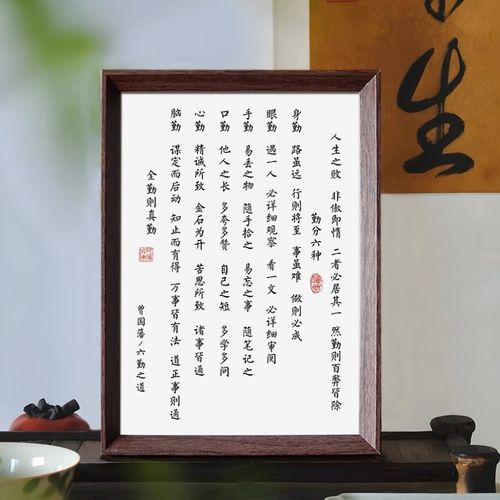 人生之败 非傲即惰 二者必居其一 然勤则百弊皆除
勤分六种
身勤 路虽远 行则将至 事虽难 做则必成
眼勤 遇一人 必详细观察 看一文 必详细审阅
手勤 易丢之物 随手拾之 易忘之事 随笔记之
口勤 他人之长 多夸多赞 自己之短 多学多问
心勤 精诚所致 金石为开 苦思所致 诸事皆通
脑勤 谋定而后动 知止而有得 万事皆有法 道正事则通
全勤则真勤
曾国藩/六勤之道
生